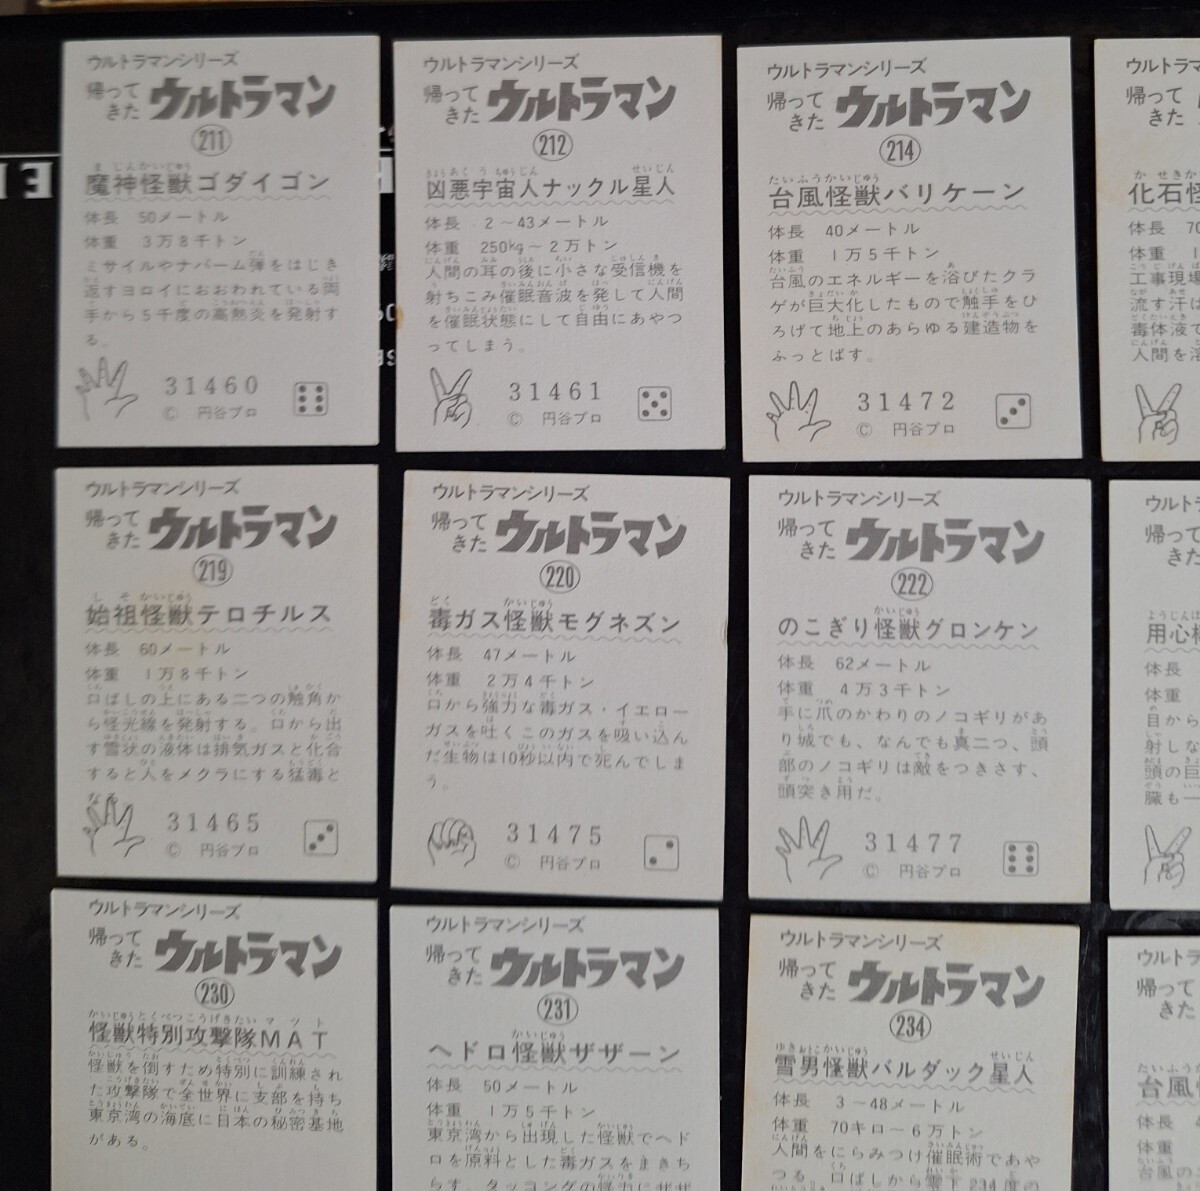 ウルトラマンシリーズ
帰ってきた ウルトラマン
211
魔神怪獣ゴダイゴン
体長 50メートル
体重 3万8千トン
ミサイルやナパーム弾をはじき
返すヨロイにおおわれている両
手から5千度の高熱炎を発射す
る。
31460
© 円谷プロ
ウルトラマンシリーズ
帰ってきた ウルトラマン
212
凶悪宇宙人ナックル星人
体長 2〜43メートル
体重 250kg〜2万トン
人間の耳の後に小さな受信機を
射ちこみ催眠音波を発して人間
を催眠状態にして自由にあやつ
ってしまう。
31461
© 円谷プロ
ウルトラマンシリーズ
帰ってきた ウルトラマン
214
台風怪獣バリケーン
体長 40メートル
体重 1万5千トン
台風のエネルギーを浴びたクラ
ゲが巨大化したもので触手をひ
ろげて地上のあらゆる建造物を
ふっとばす。
31472
© 円谷プロ
ウルトラマ
帰って
きた
化石怪
体長 70
体重 1
工事現場
流す汗は
毒体液で
人間を溶
ウルトラマンシリーズ
帰ってきた ウルトラマン
219
始祖怪獣テロチルス
体長 60メートル
体重 1万8千トン
口ばしの上にある二つの触角か
ら怪光線を発射する。口から出
す雪状の液体は排気ガスと化合
すると人をメクラにする猛毒と
なる
31465
© 円谷プロ
ウルトラマンシリーズ
帰ってきた ウルトラマン
220
毒ガス怪獣モグネズン
体長 47メートル
体重 2万4千トン
口から強力な毒ガス・イエロー
ガスを吐くこのガスを吸い込ん
だ生物は10秒以内で死んでしま
う。
31475
© 円谷プロ
ウルトラマンシリーズ
帰ってきた ウルトラマン
222
のこぎり怪獣グロンケン
体長 62メートル
体重 4万3千トン
手に爪のかわりのノコギリがあ
り城でも、なんでも真二つ、頭
部のノコギリは敵をつきさす、
頭突き用だ。
31477
© 円谷プロ
ウルトラ
帰って
きた
用心棒
体長
体重
目から
射しな
頭の巨
臓も一
ウルトラマンシリーズ
帰ってきた ウルトラマン
230
怪獣特別攻撃隊MAT
怪獣を倒すため特別に訓練され
た攻撃隊で全世界に支部を持ち
東京湾の海底に日本の秘密基地
がある。
ウルトラマンシリーズ
帰ってきた ウルトラマン
231
ヘドロ怪獣ザザーン
体長 50メートル
体重 1万5千トン
東京湾から出現した怪獣でヘド
ロを原料とした毒ガスをまきち
らす、タッコングの怪力にザザ
ウルトラマンシリーズ
帰ってきた ウルトラマン
234
雪男怪獣バルダック星人
体長 3〜48メートル
体重 70キロ〜6万トン
人間をにらみつけ催眠術であや
つる、口ばしから零下234度の
ウルトラ
帰って
きた
台風
体長 4
体重
台風の